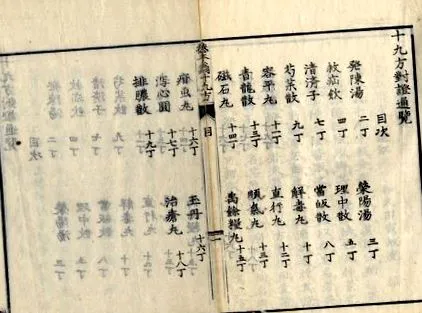 十九方對證通覽
目次
發陳湯 二丁 陽湯 三丁
飲 四丁 理中散 五丁
清濟子 七丁 當皈散 八丁
芍藥散 九丁 解毒丸 十丁
容平丸 十一丁 直行丸 十二丁
青龍散 十三丁 順氣丸 十三丁
磁石丸 十四丁 禹餘糧丸 十五丁
翁十九方 目
虫丸 十六丁 玉丹 十六丁
心圓 十七丁 治瘡丸 十八丁
排膿散 十九丁